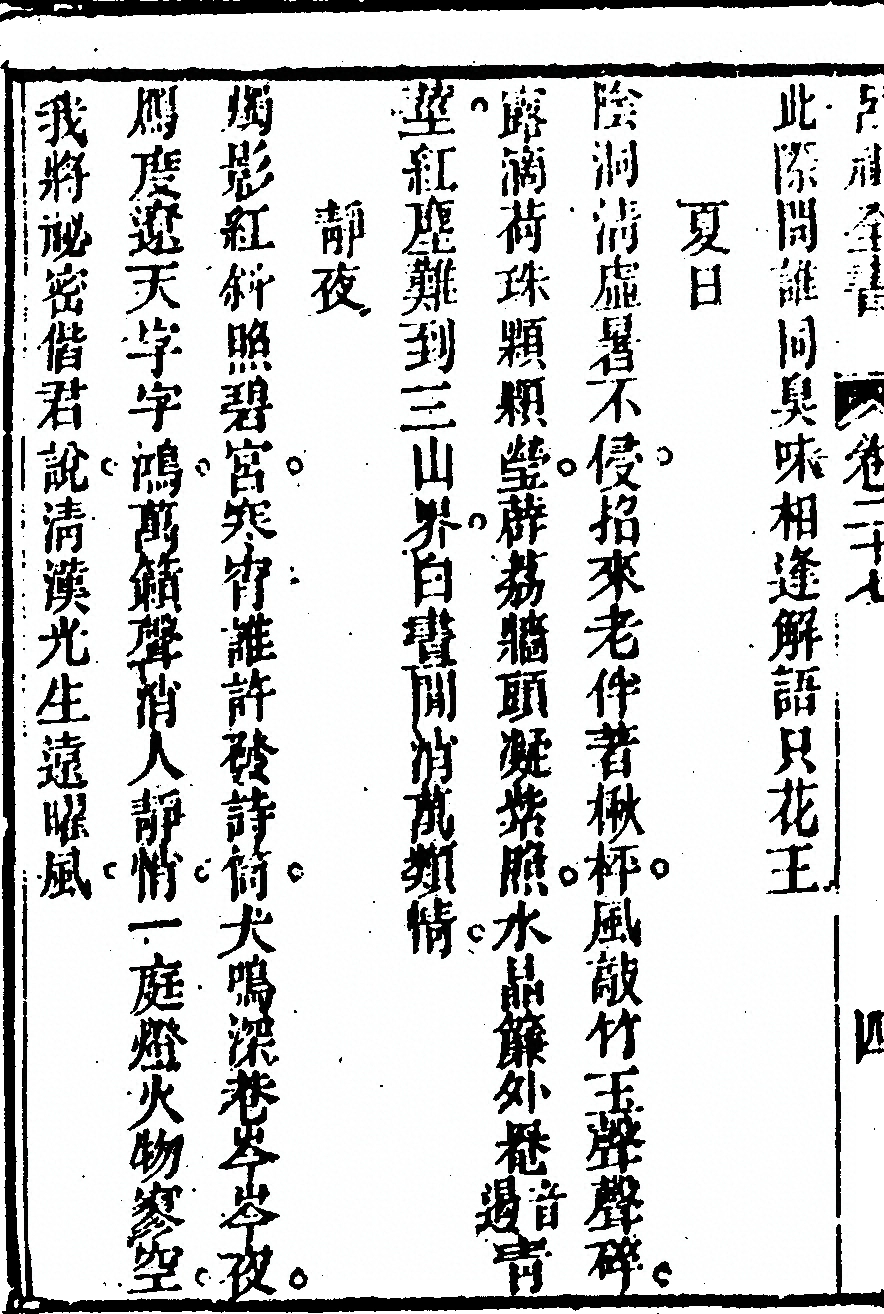 呂祖全書 卷二十七 四
此際問誰同臭味相逢解語只花王
夏日
陰洞清虛暑不侵招來老伴著楸枰風敲竹玉聲聲碎
露滴荷珠顆顆瑩薜荔牆頭凝紫照水晶簾外靄音遏青
堂紅塵難到三山界白晝閒消萬類情
靜夜
燭影紅斜照碧宮寒宵誰許發詩筒犬鳴深巷岑岑夜
鴈度遼天字字鴻萬籟聲消人靜悄一庭燈火物寥空
我將祕密偕君說清漢光生遠曜風